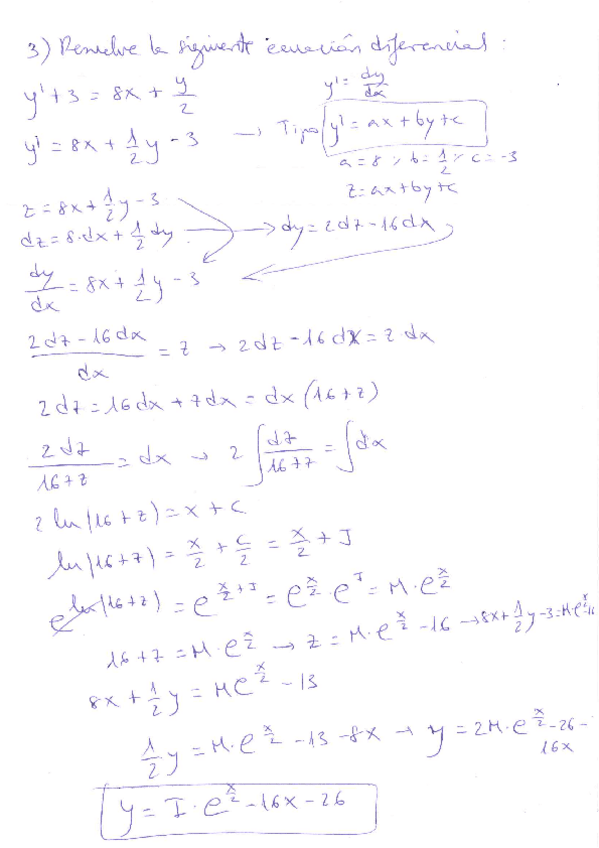 3) Resuelve la siguiente ecuación diferencial:
y' + 3 = 8x + y/2    y' = dy/dx
y' = 8x + 1/2 y - 3 → Tipo y' = ax + by + c
a = 8, b = 1/2, c = -3
z = ax + by + c
z = 8x + 1/2 y - 3
dz = 8·dx + 1/2 dy → dy = 2dz - 16dx
dy/dx = 8x + 1/2 y - 3
(2dz - 16dx)/dx = z → 2dz - 16dx = z dx
2dz = 16dx + zdx = dx(16+z)
2dz/(16+z) = dx → 2∫dz/(16+z) = ∫dx
2 ln(16+z) = x + C
ln(16+z) = x/2 + C/2 = x/2 + J
e^ln(16+z) = e^(x/2+J) = e^(x/2) · e^J = M·e^(x/2)
16+z = M·e^(x/2) → z = M·e^(x/2) - 16 → 8x + 1/2 y - 3 = M·e^(x/2) - 16
8x + 1/2 y = Me^(x/2) - 13
1/2 y = M·e^(x/2) - 13 - 8x → y = 2M·e^(x/2) - 26 -
16x
y = I·e^(x/2) - 16x - 26